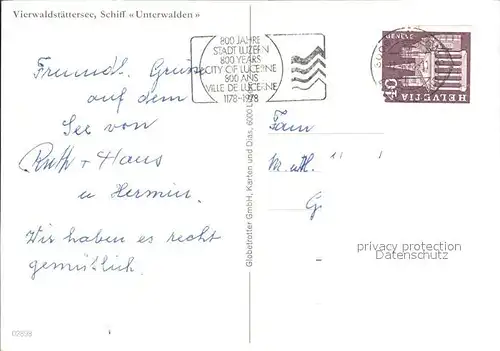 Vierwaldstättersee, Schiff «Unterwalden»
800 JAHRE
STADT LUZERN
800 YEARS
CITY OF LUCERNE
800 ANS
VILLE DE LUCERNE
1178-1978
GENÈVE
HELVETIA
Freundl. Grüsse
auf dem
See von
Ruth + Hans
u Hermin.
Wir haben es recht
gemütlich.
Fam
G
Globetrotter GmbH, Karten und Dias, 6000 L
privacy protection
Datenschutz